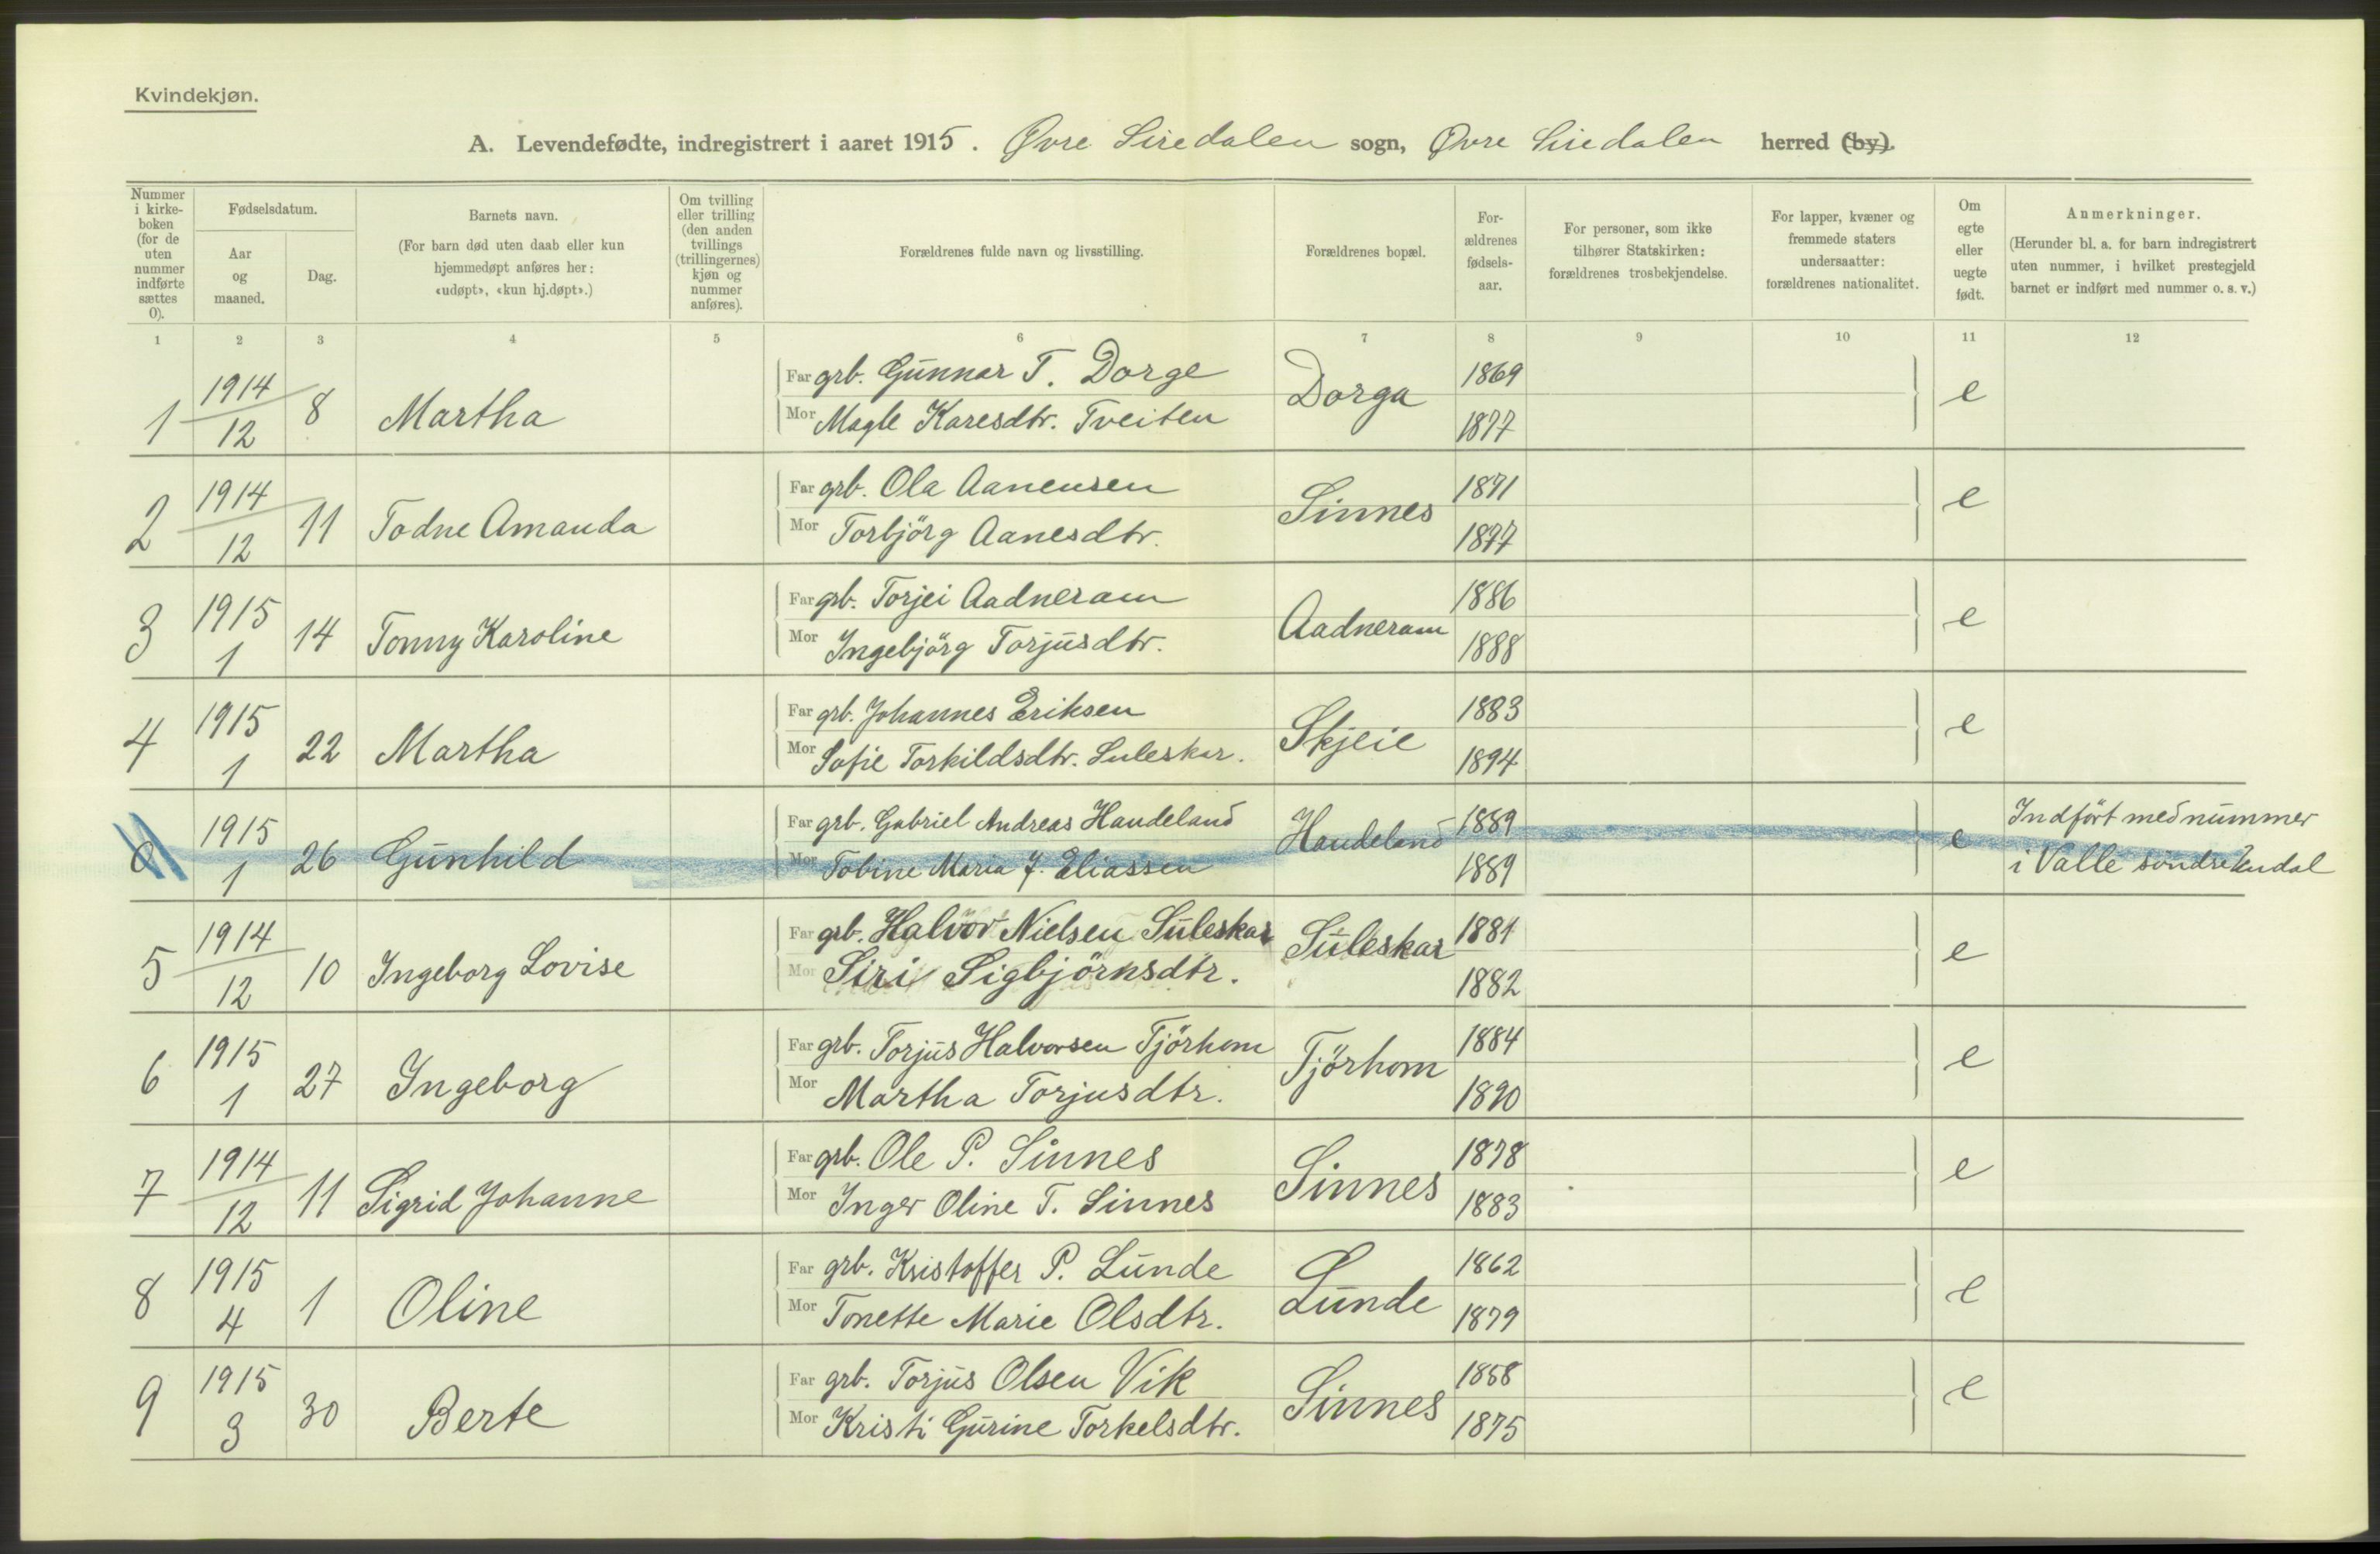 Kvindekjøn.
A. Levendefødte, indregistrert i aaret 1915. Øvre Siredalen sogn, Øvre Siredalen herred (by).
Nummer i kirke-boken (for de uten nummer indførte sættes 0).
Fødselsdatum.
Aar og maaned.
Dag.
Barnets navn.
(For barn død uten daab eller kun hjemmedøpt anføres her: «udøpt», «kun hj.døpt».)
Om tvilling eller trilling (den anden tvillings (trillingernes) kjøn og nummer anføres).
Forældrenes fulde navn og livsstilling.
Forældrenes bopæl.
For-ældrenes fødsels-aar.
For personer, som ikke tilhører Statskirken: forældrenes trosbekjendelse.
For lapper, kvæner og fremmede staters undersaatter: forældrenes nationalitet.
Om egte eller uegte født.
Anmerkninger.
(Herunder bl. a. for barn indregistrert uten nummer, i hvilket prestegjeld barnet er indført med nummer o. s. v.)
1 2 3 4 5 6 7 8 9 10 11 12
1 1914/12 8 Martha Far grb. Gunnar T. Dorge Dorga 1869 e
Mor Magle Karesdtr. Tveiten 1877
2 1914/12 11 Todne Amanda Far grb. Ola Aanensen Sinnes 1871 e
Mor Torbjörg Aanesdtr. 1877
3 1915 1 14 Tonny Karoline Far grb. Torjei Aadneram Aadneram 1886 e
Mor Ingebjörg Torjusdtr. 1888
4 1915 1 22 Martha Far grb. Johannes Eriksen Skjeie 1883 e
Mor Sofie Torkildsdtr. Suleskar. 1894
0 1915 1 26 Gunhild Far grb. Gabriel Andreas Handeland Handeland 1889 e Indfört med nummer
Mor Tobine Maria J. Eliassen 1889 i Valle söndre Undal
5 1914/12 10 Ingeborg Lovise Far grb. Halvor Nielsen Suleskar Suleskar 1881 e
Mor Siri Sigbjörnsdtr. 1882
6 1915 1 27 Ingeborg Far grb. Torjus Halvorsen Tjörhom Tjörhom 1884 e
Mor Martha Torjusdtr. 1890
7 1914/12 11 Sigrid Johanne Far grb. Ole P. Sinnes Sinnes 1878 e
Mor Inger Oline T. Sinnes 1883
8 1915 4 1 Oline Far grb. Kristoffer P. Lunde Lunde 1862 e
Mor Tonette Marie Olsdtr. 1879
9 1915 3 30 Berte Far grb. Torjus Olsen Vik Sinnes 1858 e
Mor Kristi Gurine Torkelsdtr. 1875